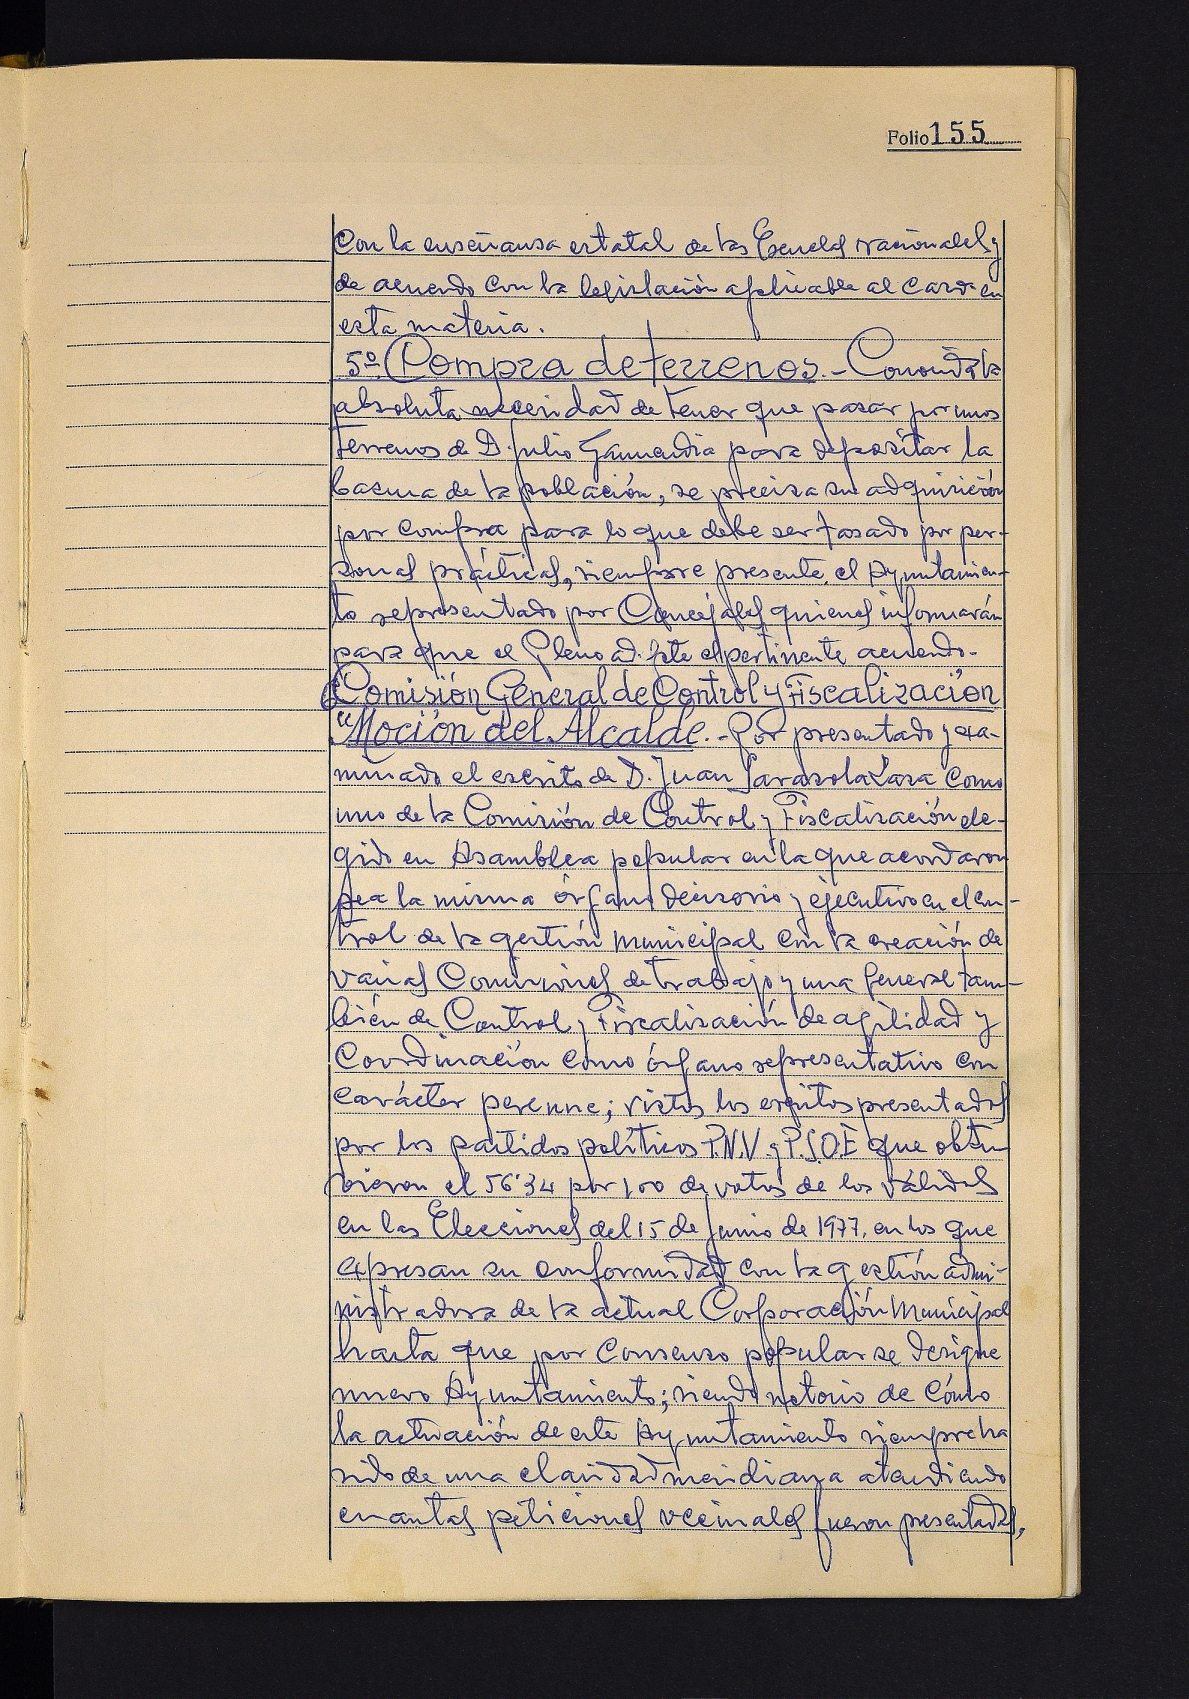 Folio 155
con la enseñansa estatal de las Escuelas nacionales y
de acuerdo con la legislación aplicable al caso en
esta materia.
5º Compra de terrenos.- Conocida la
absoluta necesidad de tener que pasar por unos
terrenos de D. Julio para depositar la
basura de la población, se precisa su adquisición
por compra para lo que debe ser tasado por per-
sonas prácticas, siempre presente el Ayuntamien-
to representado por Concejales quienes informarán
para que el Pleno adopte el pertinente acuerdo.
Comisión General de Control y Fiscalización
"Moción del Alcalde.- Por presentado y exa-
minado el escrito de D. Juan Sarasola Lasa como
uno de la Comisión de Control y Fiscalización ele-
gido en Asamblea popular en la que acordaron
sea la misma órgano decisorio y ejecutivo en el con-
trol de la gestión municipal con la creación de
varias Comisiones de trabajo y una General tam-
bién de Control y Fiscalización de agilidad y
Coordinación cómo órgano representativo con
carácter perenne; vistos los escritos presentados
por los partidos políticos P.N.V. y P.S.O.E que obtu
vieron el 56'34 por 100 de votos de los válidos
en las Elecciones del 15 de Junio de 1977, en los que
expresan su conformidad con la gestión admi-
nistradora de la actual Corporación Municipal
hasta que por consenso popular se designe
nuevo Ayuntamiento; siendo notorio de cómo
la actuación de este Ayuntamiento siempre ha
sido de una claridad meridiana atendiendo
cuantas peticiones vecinales fueron presentadas,